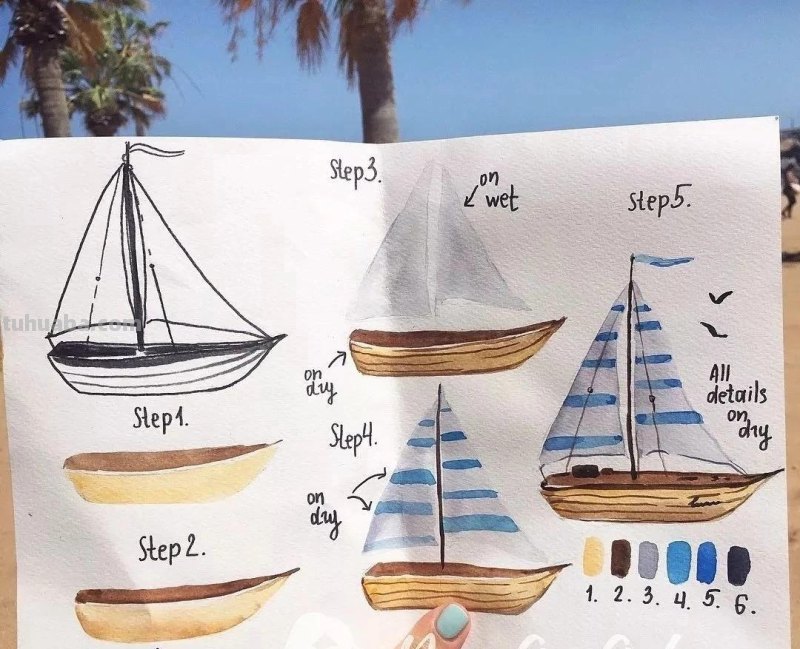 tuhuaba.com
Step1.
Step2.
Step3.
on
wet
on
dry
Step4.
on
dry
Step5.
All
details
on
dry
1. 2. 3. 4. 5. 6.